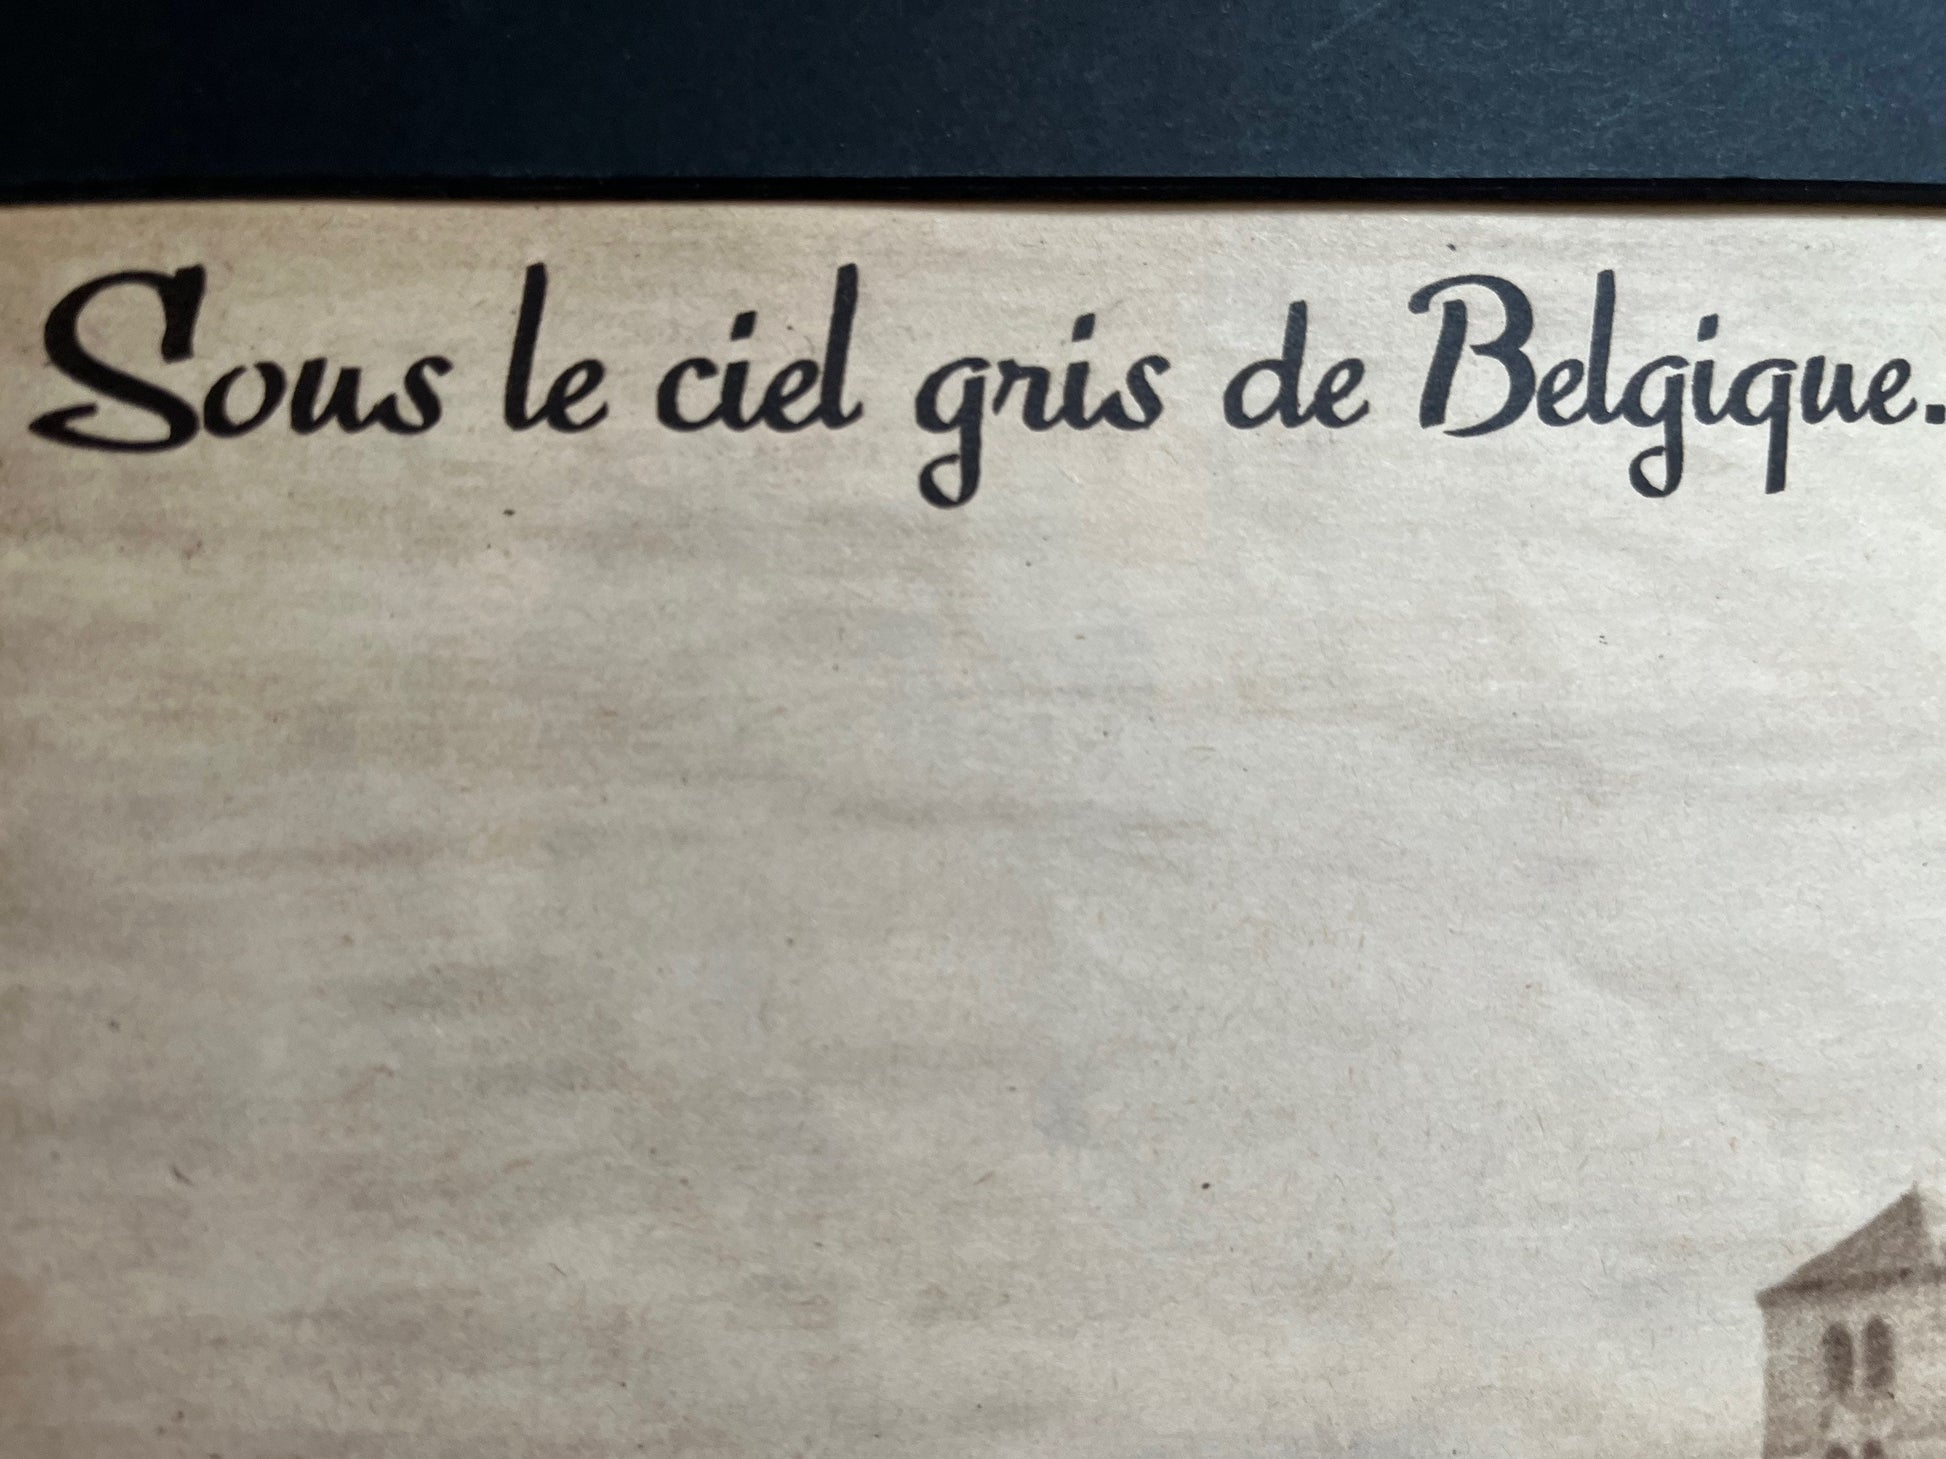 Sous le ciel gris de Belgique.